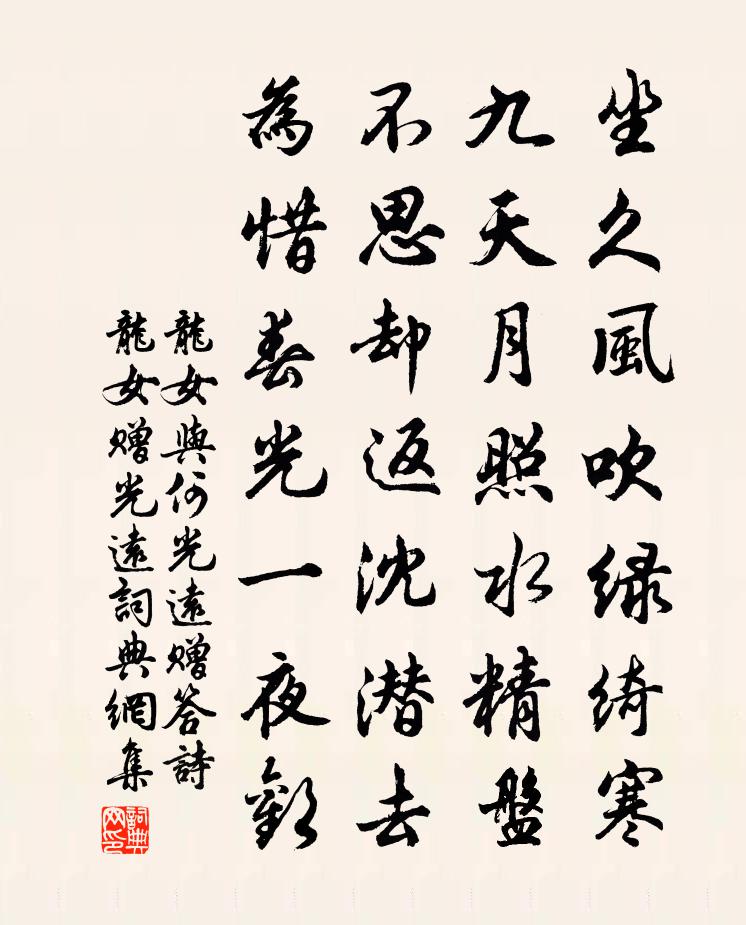 坐久風吹綠綺寒
九天月照水精盤
不思却返沈潜去
為惜春光一夜歡
龍女與何光遠贈答詩
龍女贈光遠詞典網集
詞典
网印